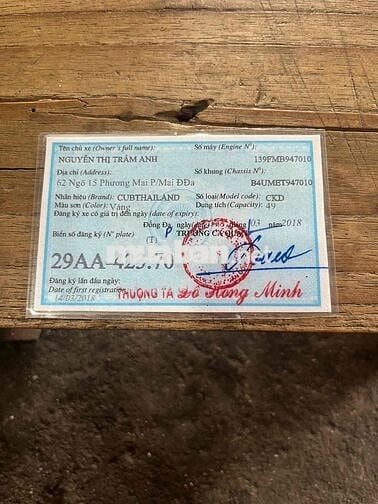 Tên chủ xe (Owner's full name): Số máy (Engine Nº):
NGUYỄN THỊ TRÂM ANH 139FMB947010
Địa chỉ (Address): Số khung (Chassis Nº):
62 Ngõ 15 Phương Mai P/Mai ĐĐa B4UMBT947010
Nhãn hiệu (Brand): CUBTHAILAND Số loại(Model code): CKD
Màu sơn (Color): Vàng Dung tích (Capacity): 49
Đăng ký xe có giá trị đến ngày (date of expiry):
Đống Đa, 03 2018
Biển số đăng ký (Nº Plate) P TRƯỞNG CA QUẬN
(T)
29AA-423.70
Đăng ký lần đầu ngày:
Date of first registration
14/03/2018
THƯỢNG TÁ Đỗ Hồng Minh